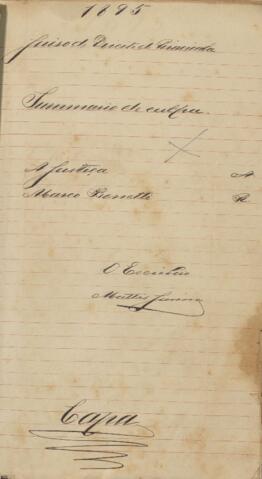 1895
Juizo de Direito de Piracicaba
Summario de culpa.
A Justiça A
Marco R
O Escrivão
Mattos
Capa